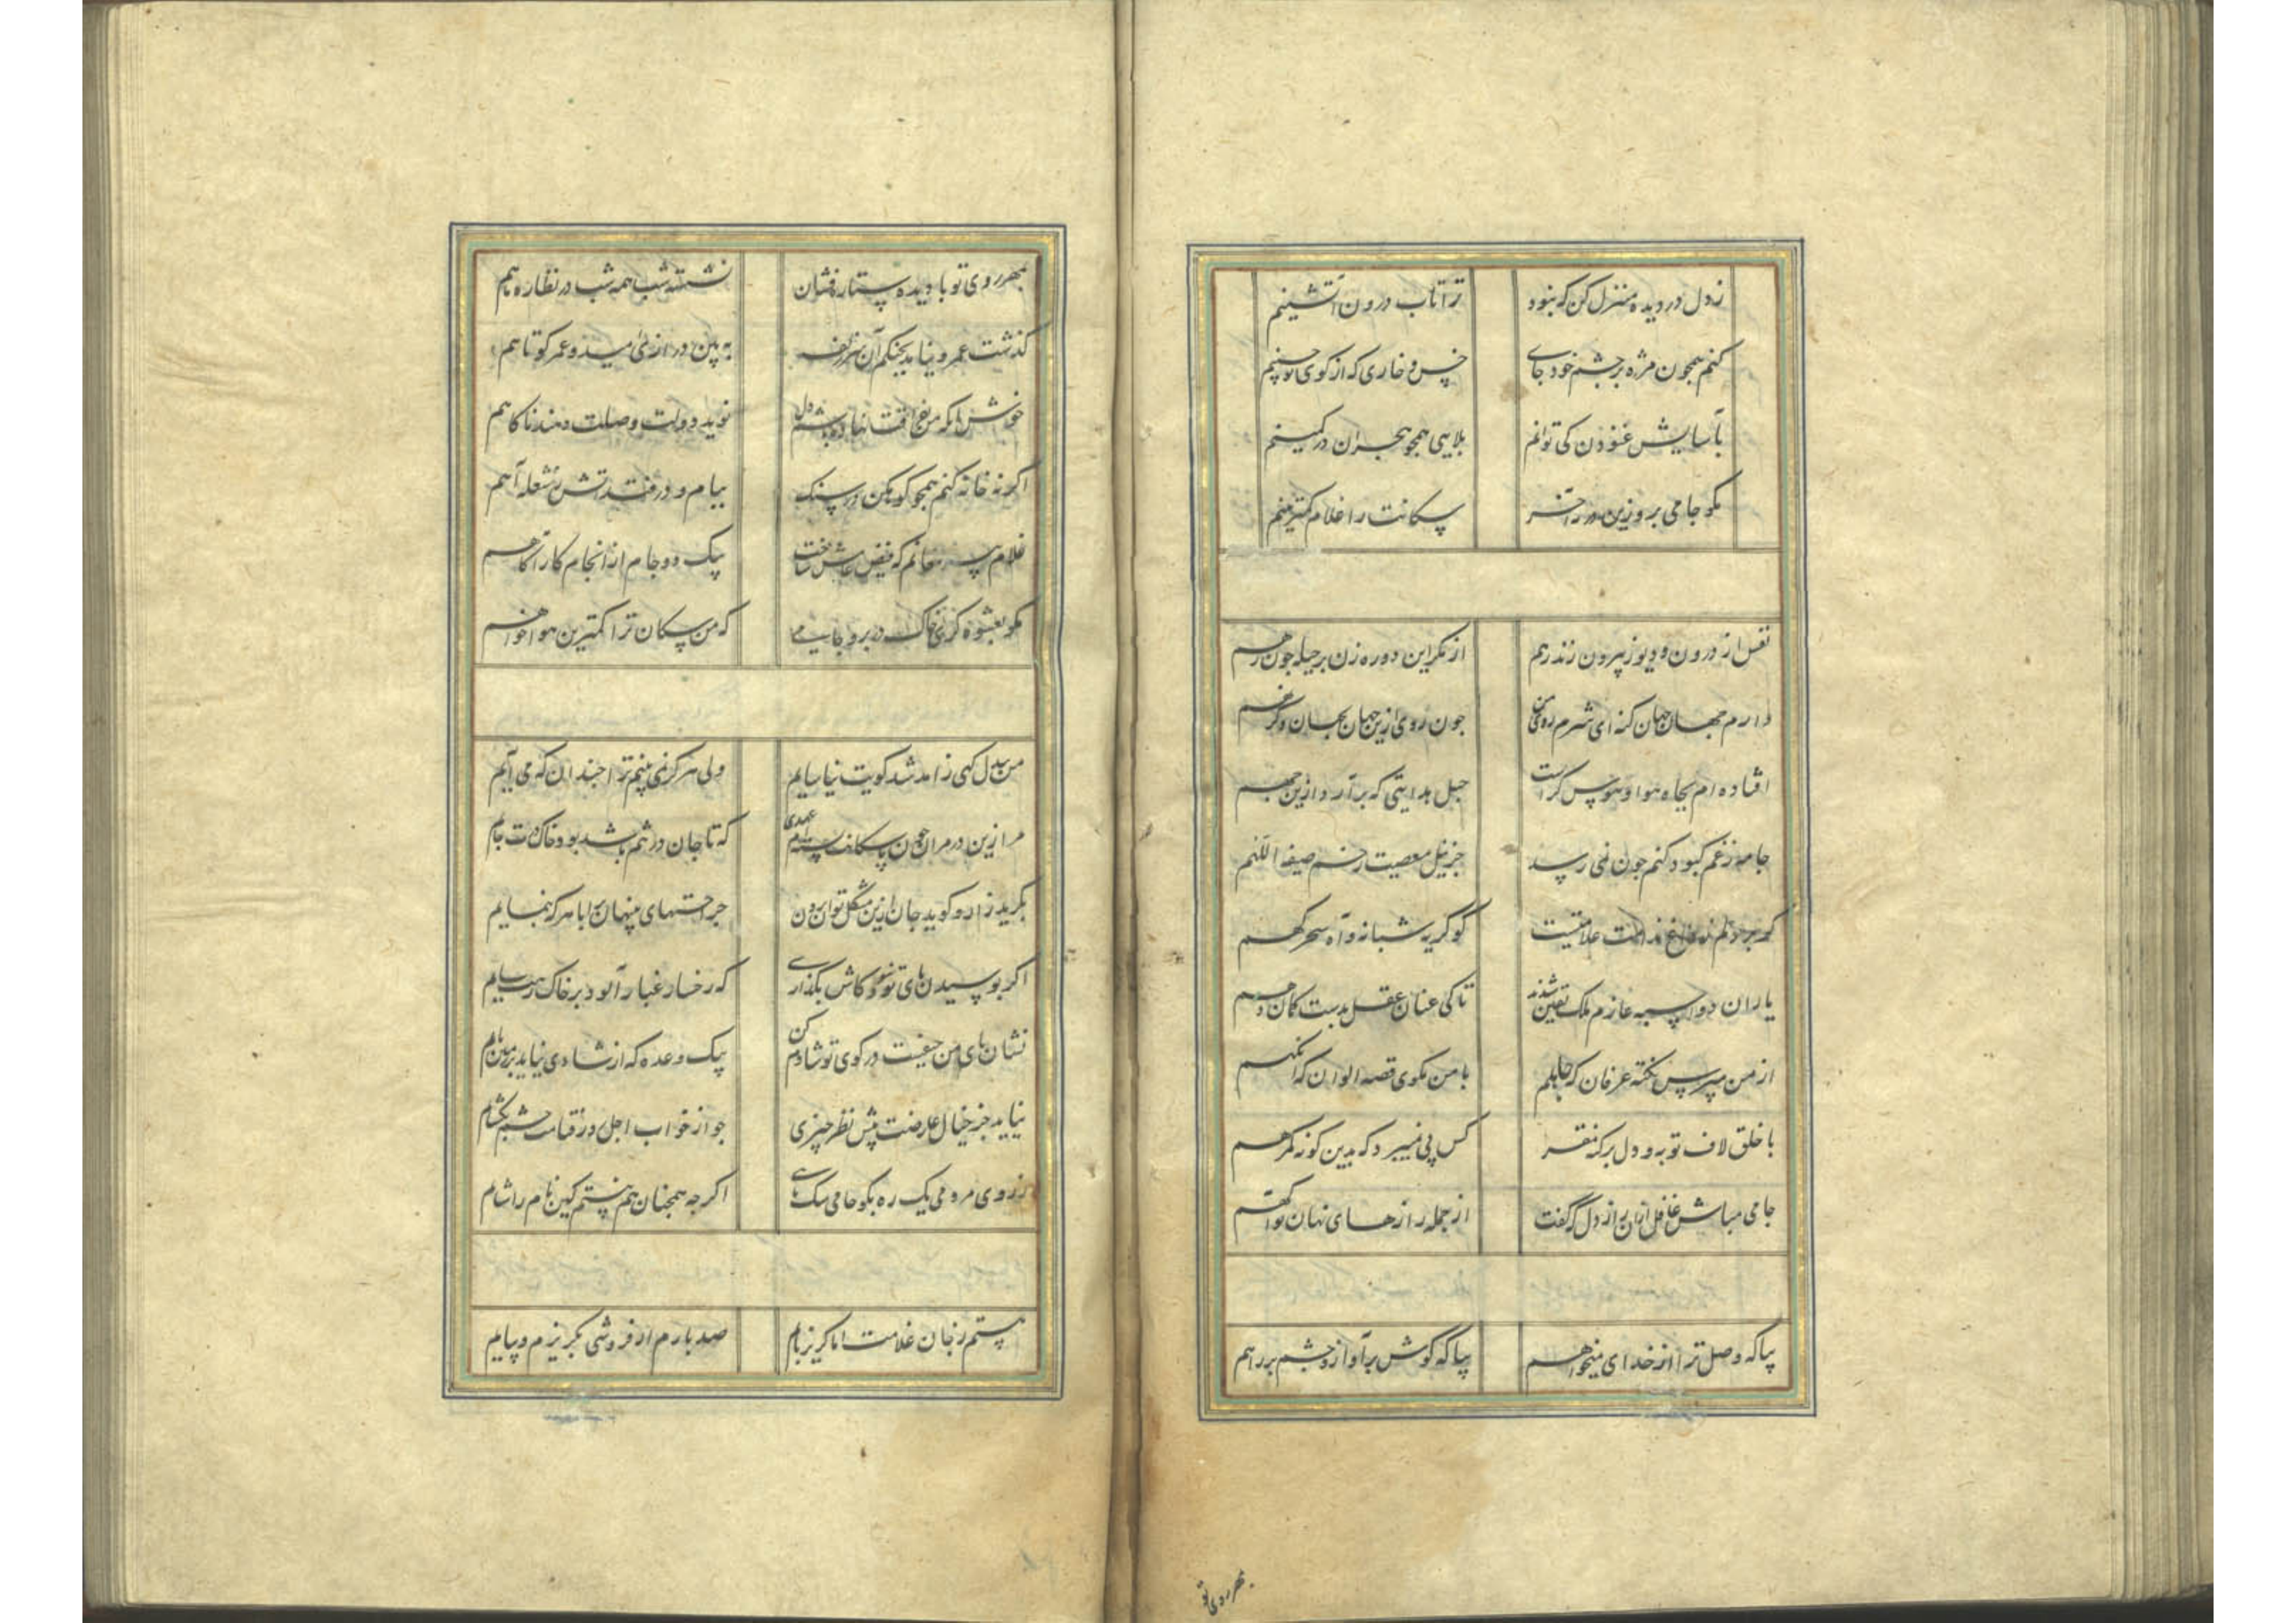 زدل در دیده منزل کن که نبود ترا تاب درون آتشینم
کنم همچون مژه بر چشم خود جای خس و خاری که از کوی تو چینم
بآسایش غنودن کی توانم بلایی همچو هجران در کمینم
مکو جامی برو زین در آخر سکانت را غلام کمترینم
نفس از درون و دیو ز بیرون زند رهم از مکر این دو ره زن بر حیله چون رهم
دارم جهان جهان کنه ای شرم روی من چون روی ازین جهان بجهان دکر نهم
افتاده ام بچاه هوا و هوس کراست حبل هدایتی که برآرد ازین چهم
جامه ز غم کبود کنم چون نمی رسد جز نیل معصیت ز خم صبغة اللهم
کو بر دلم ز داغ ندامت علامتیست کو کریه شبانه و آه سحرکهم
یاران دو اسبه عازم ملک یقین شدند تا کی عنان عقل بدست کمان دهم
از من مپرس نکته عرفان که جاهلم با من مکوی قصه الوان که اکمهم
با خلق لاف توبه و دل بر کنه مصر کس پی نمیبرد که بدین کونه کمرهم
جامی مباش غافل ازان راز دل که گفت از جمله رازهای نهان تو آکهم
بیا که وصل ترا از خدای میخواهم بیا که کوش برآواز و چشم بر راهم
بمهر روی تو با دیده ستاره فشان نشسته شب همه شب در نظاره ماهم
کذشت عمر و نیامد بچنکم آن سر زلف به بین درازی امید و عمر کوتاهم
خوش انکه من بفراقت نهاده باشم دل نوید دولت وصلت دهند ناکاهم
اکر نه خانه کنم همچو کوهکن در سنک بیام و در فتد آتش ز شعله آهم
غلام پیر مغانم که فیض عامش ساخت بیک دو جام از انجام کار آکاهم
مکو بعشوه کری خاک در برو جامی که من سکان ترا کمترین هواخواهم
من بیدل کهی ز آمد شد کویت نیاسایم ولی هرکز نمی بینم ترا چندان که می آیم
مرا زین در مران چون با سکانت بسته ام عهدی که تا جان در تنم باشد بود خاک درت جایم
بکرید زار و کوید جان ازین مشکل توان بردن جراحتهای پنهان را بهر که بنمایم
اکر بوسیدن پای تو نبود کاش بکذاری که رخسار غبار آلود بر خاک رهت سایم
نشان پای من حیفست در کوی تو شادم کن بیک وعده که از شادی نیاید بر زمین پایم
نیاید جز خیال عارضت پیش نظر چیزی چو از خواب اجل روز قیامت چشم بکشایم
ز روی مردمی یک ره بکو جامی سک مایی اکر چه همچنان هم نیستم کین نام را شایم
هستم ز جان غلامت اما کریز پایم صد بارم ار فروشی بکریزم و بیایم
بمهر روی تو